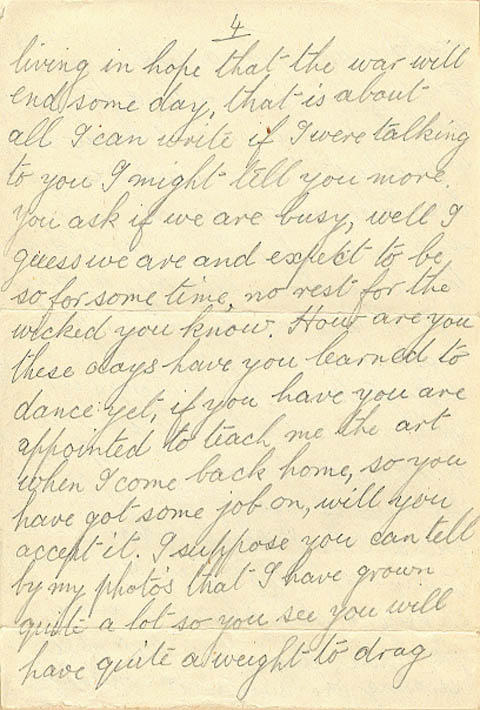 4
living in hope that the war will
end some day, that is about
all I can write if I were talking
to you I might tell you more.
You ask if we are busy, well I
guess we are and expect to be
so for some time, no rest for the
wicked you know. How are you
these days have you learned to
dance yet, if you have you are
appointed to teach me the art
when I come back home, so you
have got some job on, will you
accept it. I suppose you can tell
by my photo's that I have grown
quite a lot so you see you will
have quite a weight to drag